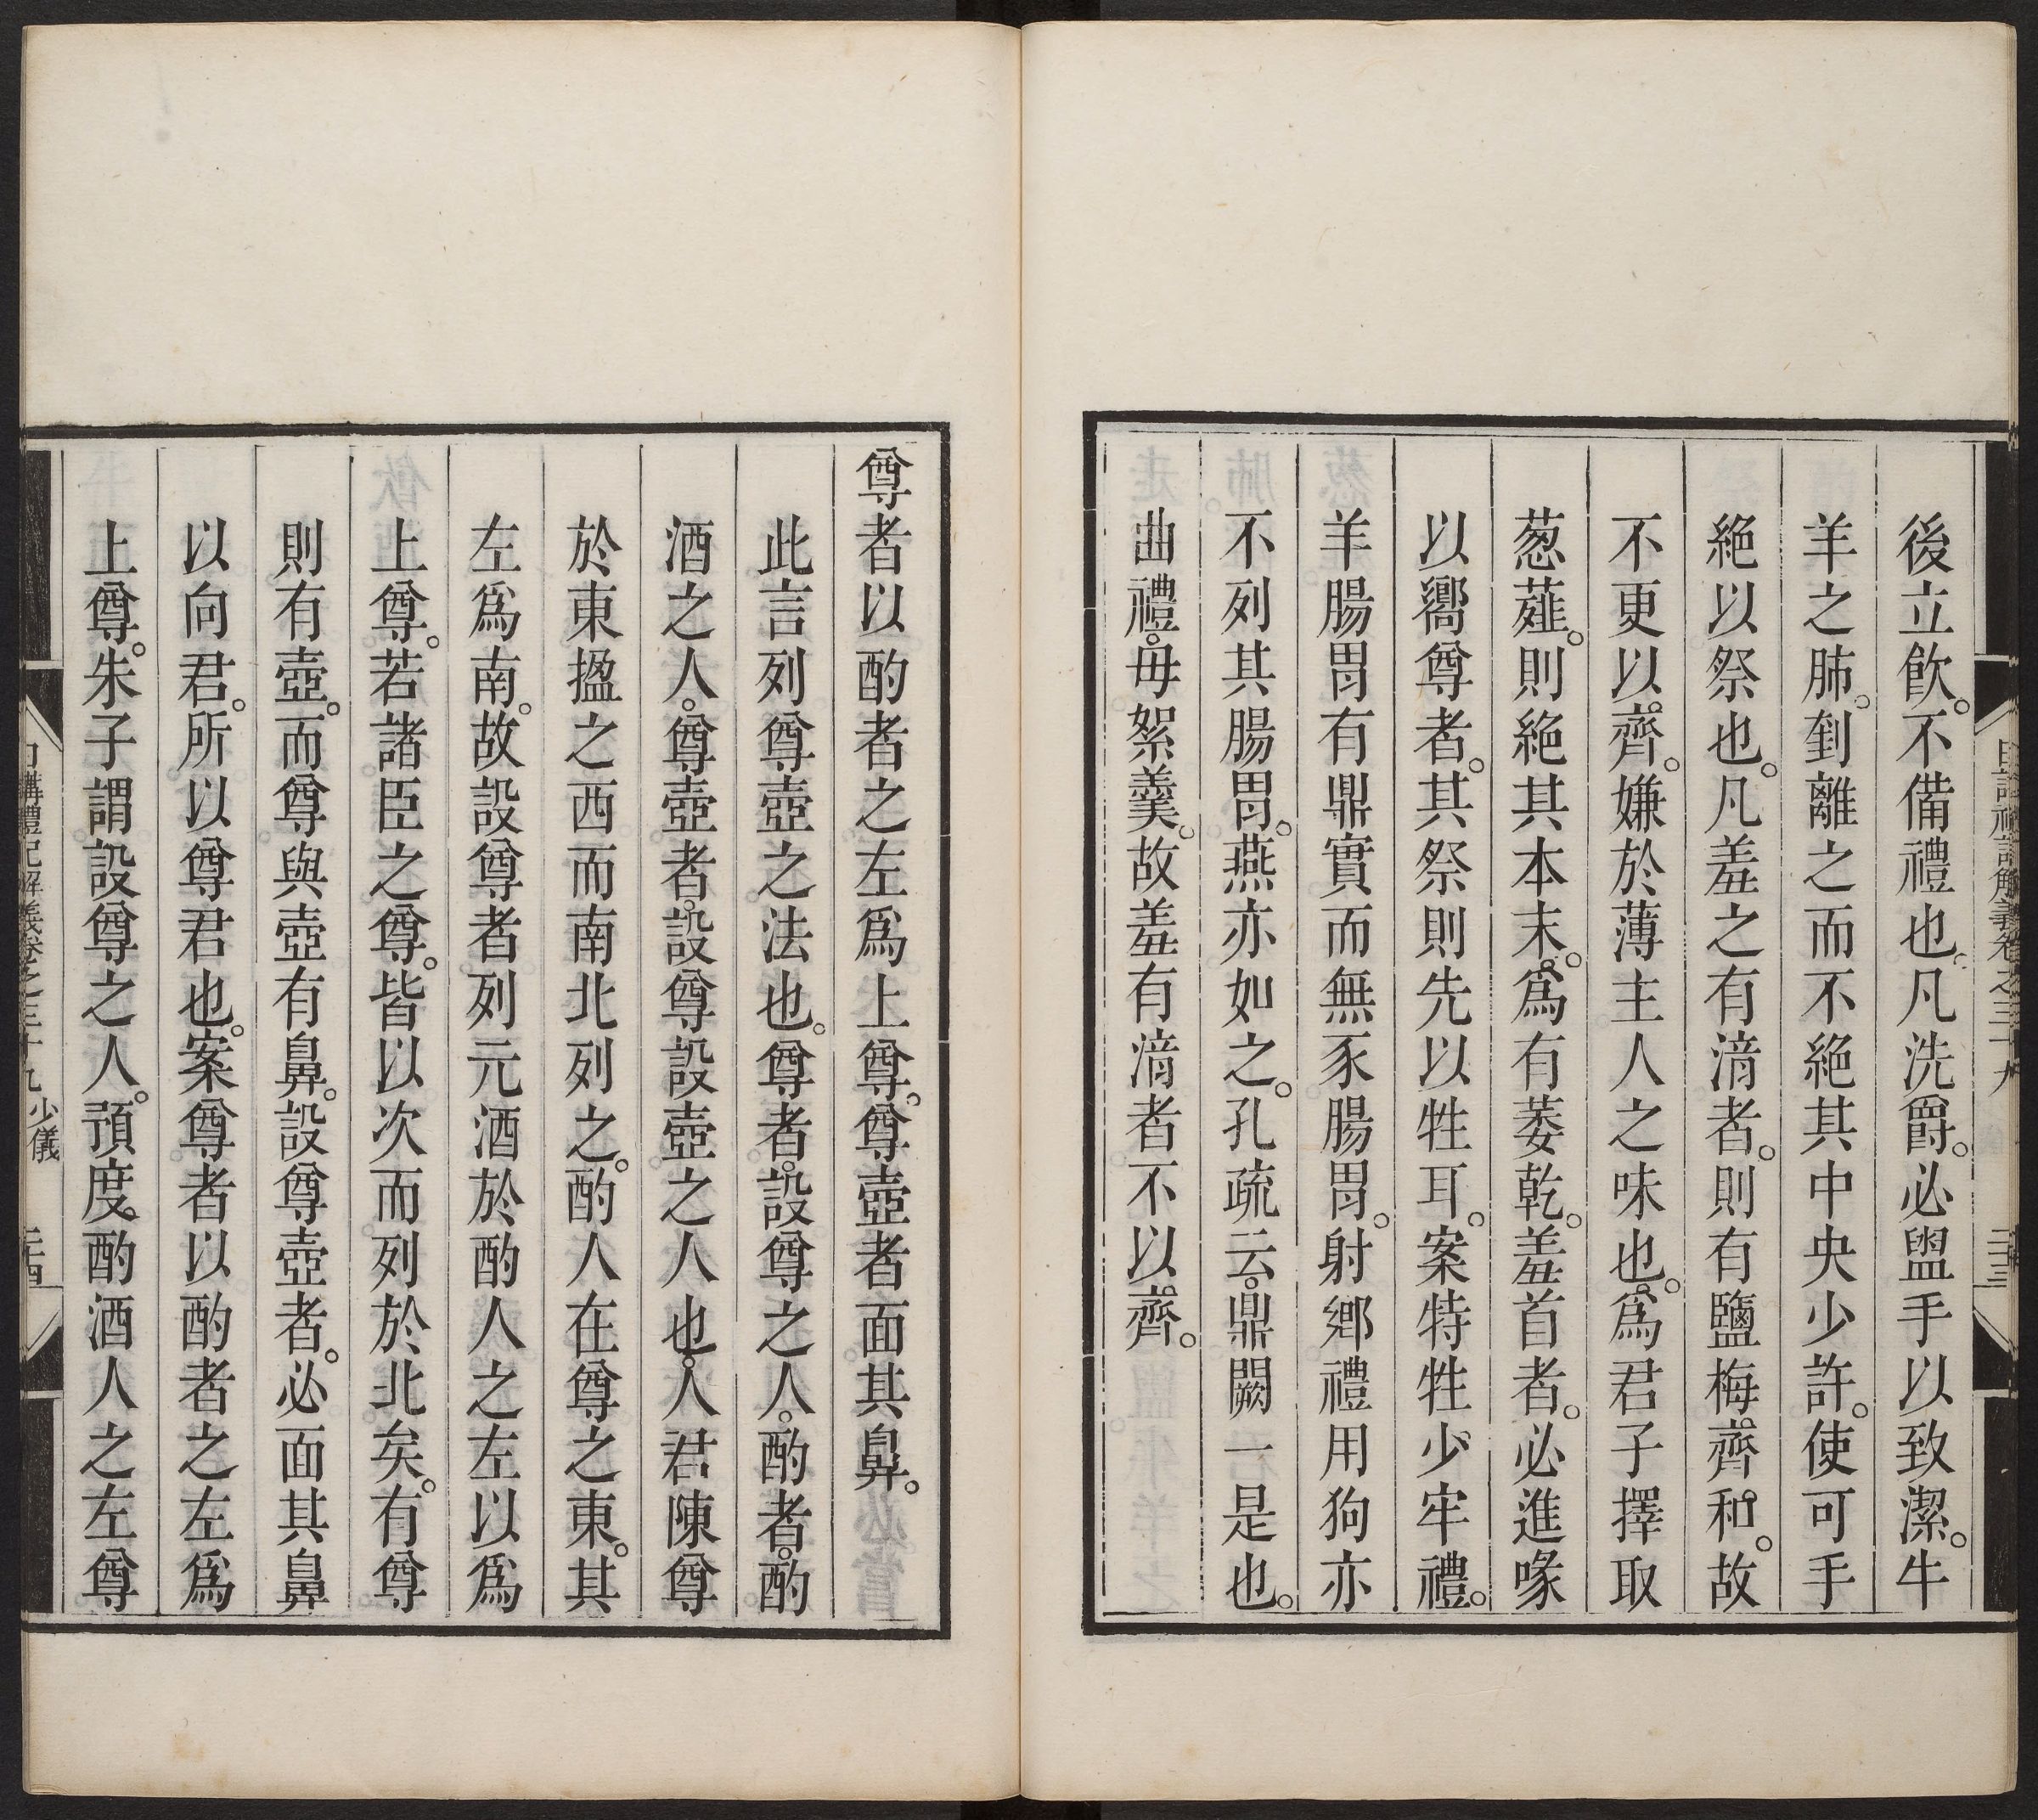 後立飲。不備禮也。凡洗爵。必盥手以致潔。牛
羊之肺。刲離之而不絶其中央少許。使可手
絶以祭也。凡羞之有湆者。則有鹽梅齊和。故
不更以齊。嫌於薄主人之味也。爲君子擇取
葱薤。則絶其本末。爲有萎乾。羞首者。必進喙
以嚮尊者。其祭則先以牲耳。案特牲少牢禮。
羊腸胃有鼎實而無豕腸胃。射鄉禮用狗亦
不列其腸胃。燕亦如之。孔疏云。鼎闕一是也。
曲禮。毋絮羹。故羞有湆者不以齊。
日講禮記解義卷之三十九 二十三
尊者以酌者之左爲上尊。尊壺者面其鼻。
此言列尊壺之法也。尊者。設尊之人。酌者。酌
酒之人。尊壺者。設尊設壺之人也。人君陳尊
於東楹之西而南北列之。酌人在尊之東。其
左爲南。故設尊者列元酒於酌人之左以爲
上尊。若諸臣之尊。皆以次而列於北矣。有尊
則有壺。而尊與壺有鼻。設尊壺者。必面其鼻
以向君。所以尊君也。案尊者以酌者之左爲
上尊。朱子謂設尊之人。預度酌酒人之左尊
日講禮記解義卷之三十九 少儀 二十四